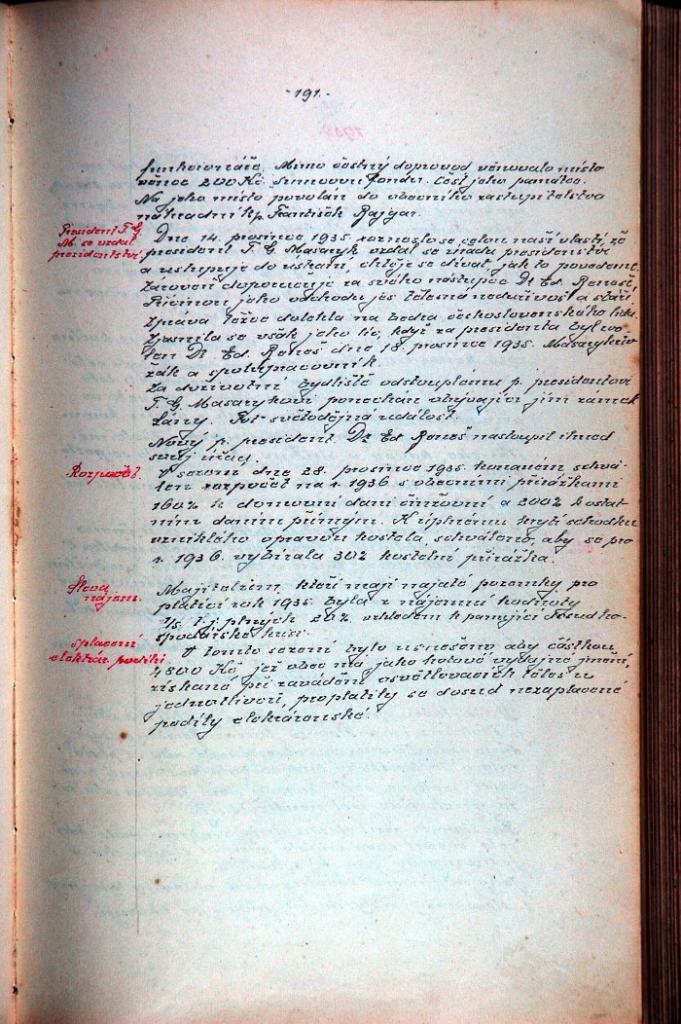 -191.-
funkcionáře. Mimo čestný doprovod věnovalo místo
věnce 200 Kč humnovu fondu. Čest jeho památce.
Na jeho místo povolán do obecního zastupitelstva
náhradník p. František Rajgar.
President T. G.
M. se vzdal
presidentství.
Dne 14. prosince 1935 rozneslo se celou naší vlastí, že
president T. G. Masaryk vzdal se úřadu presidentství
a ustupuje do ústraní, chtěje se dívat, jak to povedeme.
Zároveň doporučuje za svého nástupce Dr Ed. Beneše.
Příčinou jeho odchodu jest tělesná nedužívost a stáří.
Zpráva těžce dolehla na bedra československého lidu.
Zjasnila se však jeho líc, když za presidenta byl zvo-
len Dr. Ed. Beneš dne 18. prosince 1935. Masarykův
žák a spolupracovník.
Za doživotní bydliště odstouplému p. presidentovi
T. G. Masarykovi ponechán obývající jím zámek
Lány. Toť světodějná událost.
Nový p. president Dr Ed Beneš nastoupil ihned
svůj úřad.
Rozpočet.
V sezení dne 28. prosince 1935 konaném schvá-
len rozpočet na r. 1936 s obecními přirážkami
160% k domovní dani činžovní a 200% k ostat-
ním daním přímým. K úplnému krytí schodku
vzniklého opravou kostela, schváleno, aby se pro
r. 1936 vybírala 30% kostelní přirážka.
Sleva
nájem.
Majitelům, kteří mají najaté pozemky, pro
platící rok 1935 byla z nájemní hodnoty
1/5 t.j. plných 20% vzhledem k panující dosud ho-
spodářské krisi.
Splacení
elektrár. podílů
V tomto sezení bylo usneseno, aby částkou
4800 Kč jež obec má jako hotové výdajné jmění,
získané při zavádění osvětlovacích těles u
jednotlivců, proplatily se dosud nezaplacené
podíly elektrárenské.